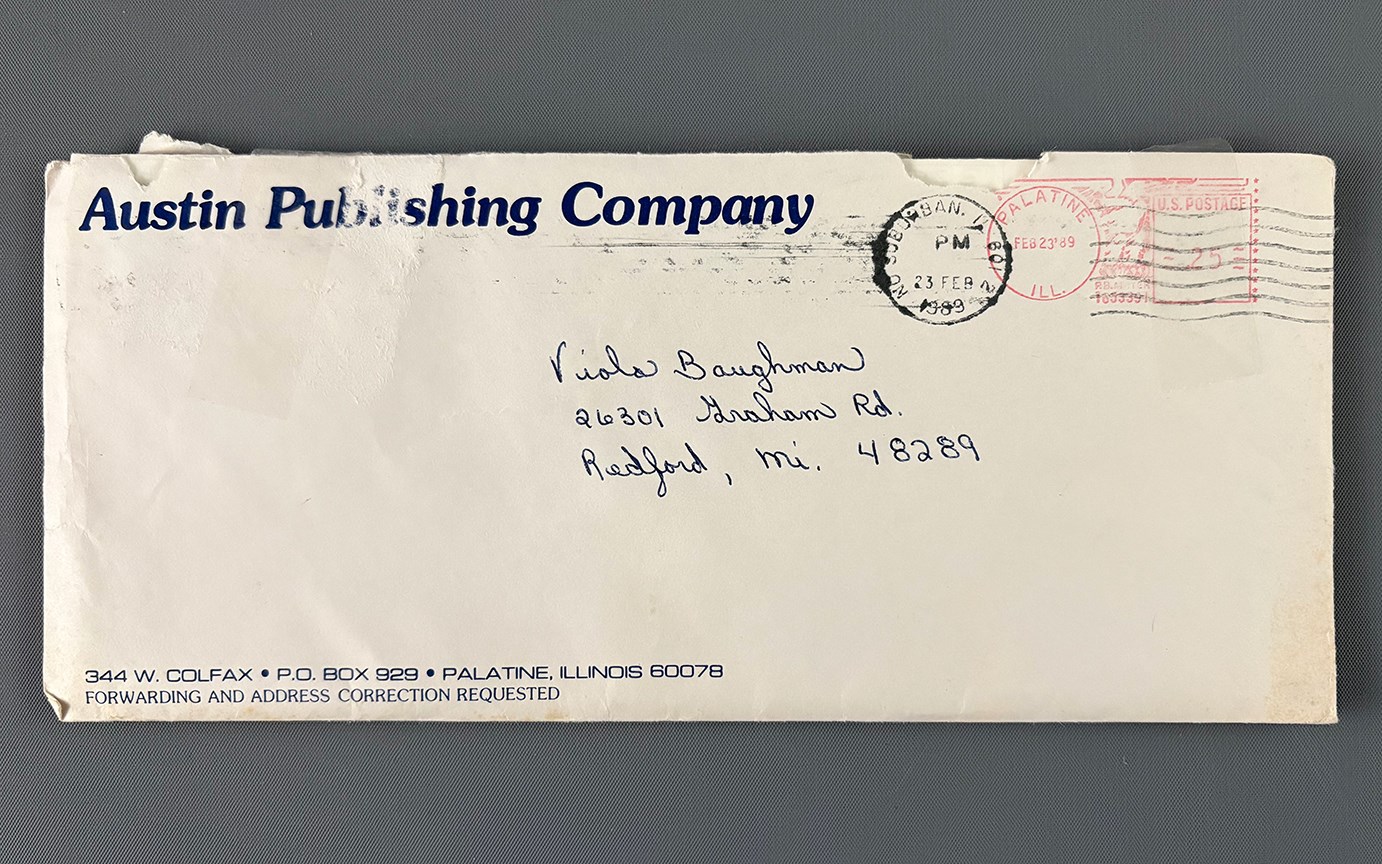 Austin Publishing Company
NO. SUBURBAN, IL 601
PM
23 FEB
1989
PALATINE
FEB 23 '89
ILL.
U.S. POSTAGE
25
P.B. METER
Viola Baughman
26301 Graham Rd.
Redford, Mi. 48289
344 W. COLFAX • P.O. BOX 929 • PALATINE, ILLINOIS 60078
FORWARDING AND ADDRESS CORRECTION REQUESTED